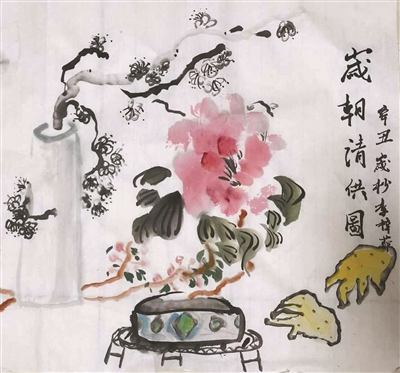 歲朝清供圖
辛丑歲杪李